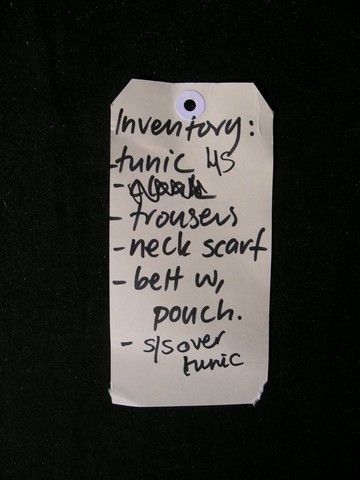 Inventory:
-tunic
-
- trousers
- neck scarf
- belt w,
pouch.
- s/s over
tunic